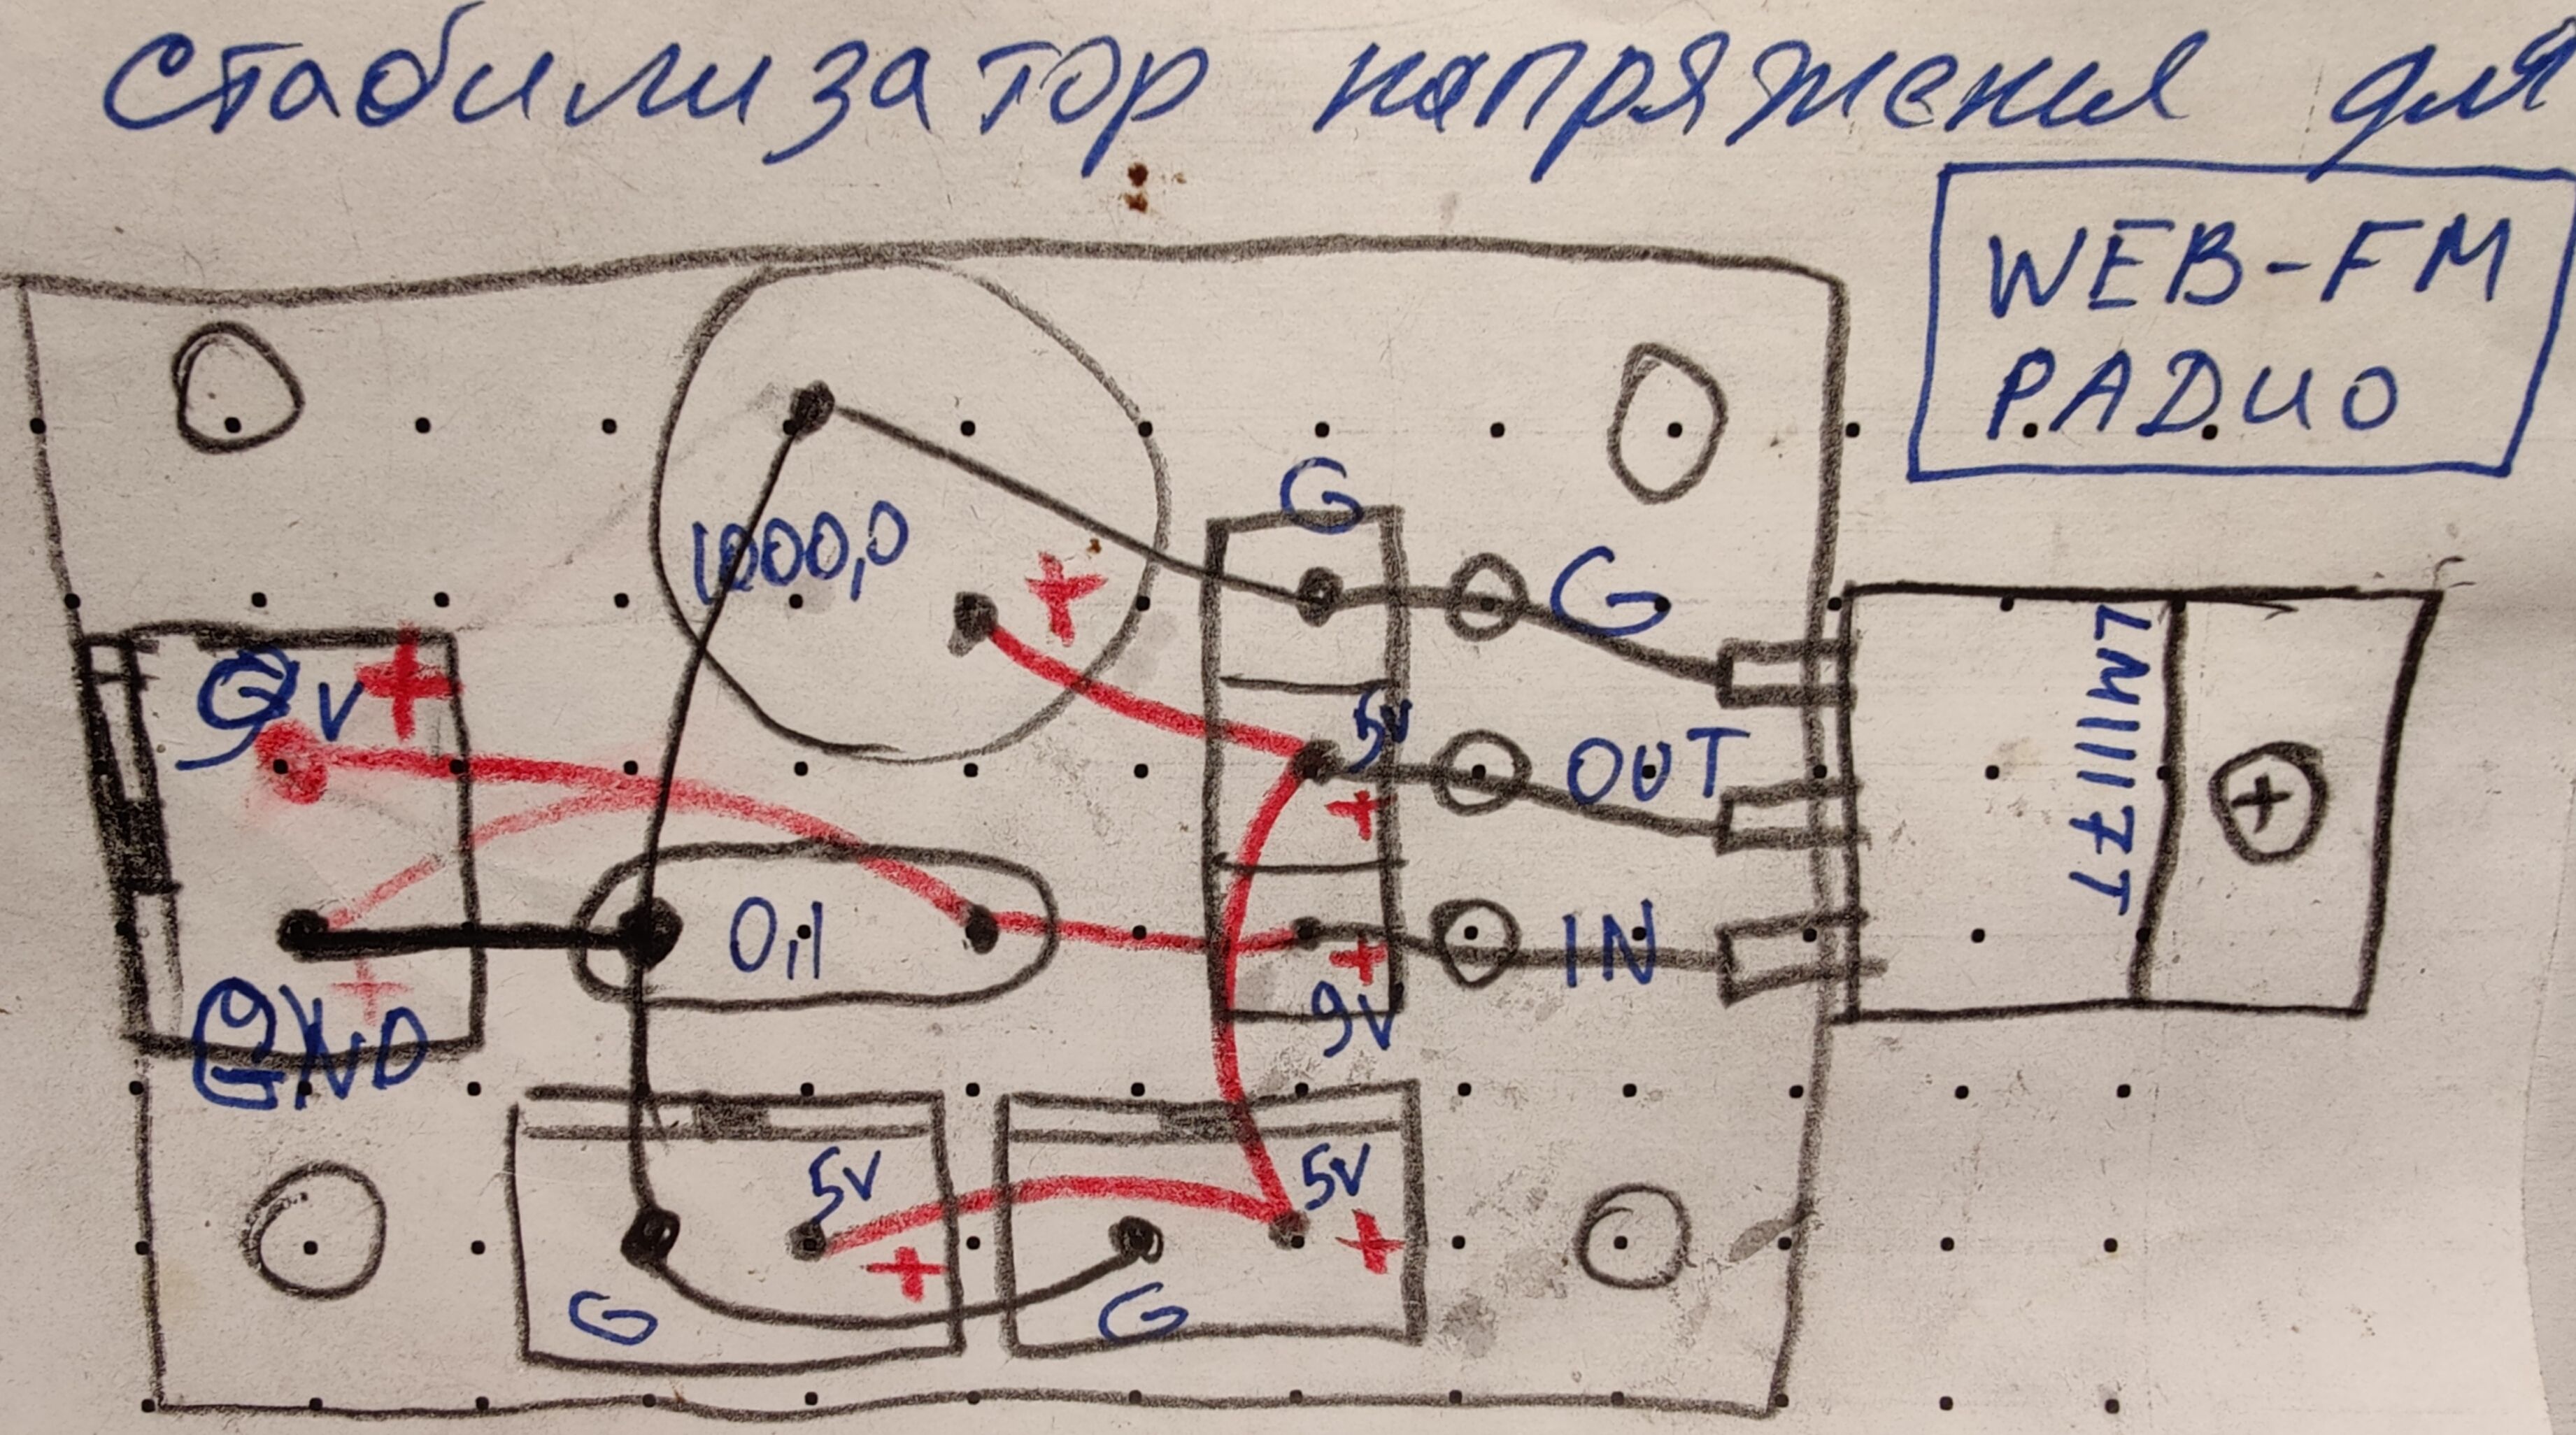 Стабилизатор напряжения для
WEB-FM
РАДИО
G
1000,0
+
G
9V +
5V
OUT
LM1117T
+
+
0,1
+
IN
+
9V
GND
5V
5V
+
+
G
G